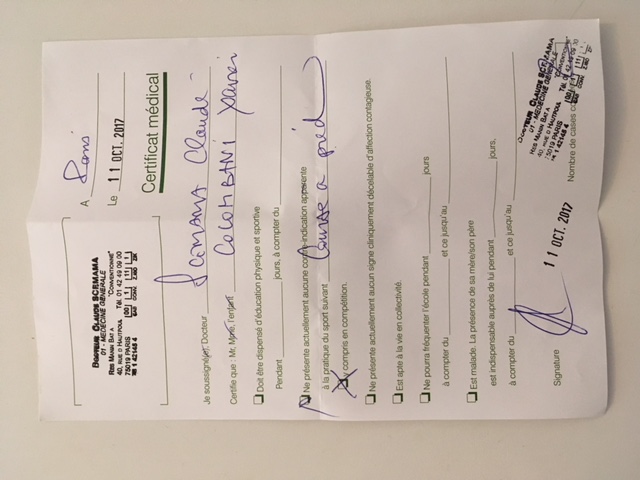 DOCTEUR CLAUDE SCEMAMA
01 - MEDECINE GENERALE
RES MANIN BAT A "CONVENTIONNE"
40, RUE D HAUTPOUL Tél. 01 42 49 09 00
75019 PARIS 00 1 11 1
CONV ZISD
A Paris
Le 11 OCT. 2017
Certificat médical
Je soussigné(e), Docteur SCEMAMA Claude
Certifie que : Mr, Mme, l'enfant COLOMBANI Xavier
Doit être dispensé d'éducation physique et sportive
Pendant jours, à compter du
Ne présente actuellement aucune contre-indication apparente
à la pratique du sport suivant Course a pied
y compris en compétition.
Ne présente actuellement aucun signe cliniquement décelable d'affection contagieuse.
Est apte à la vie en collectivité.
Ne pourra fréquenter l'école pendant jours
à compter du et ce jusqu'au
Est malade. La présence de sa mère/son père
est indispensable auprès de lui pendant jours,
à compter du et ce jusqu'au
Signature
11 OCT. 2017
DOCTEUR CLAUDE SCEMAMA
01 - MEDECINE GENERALE
RES MANIN BAT A "CONVENTIONNE"
40, RUE D HAUTPOUL Tél. 01 42 49 09 00
75019 PARIS
Nombre de cases